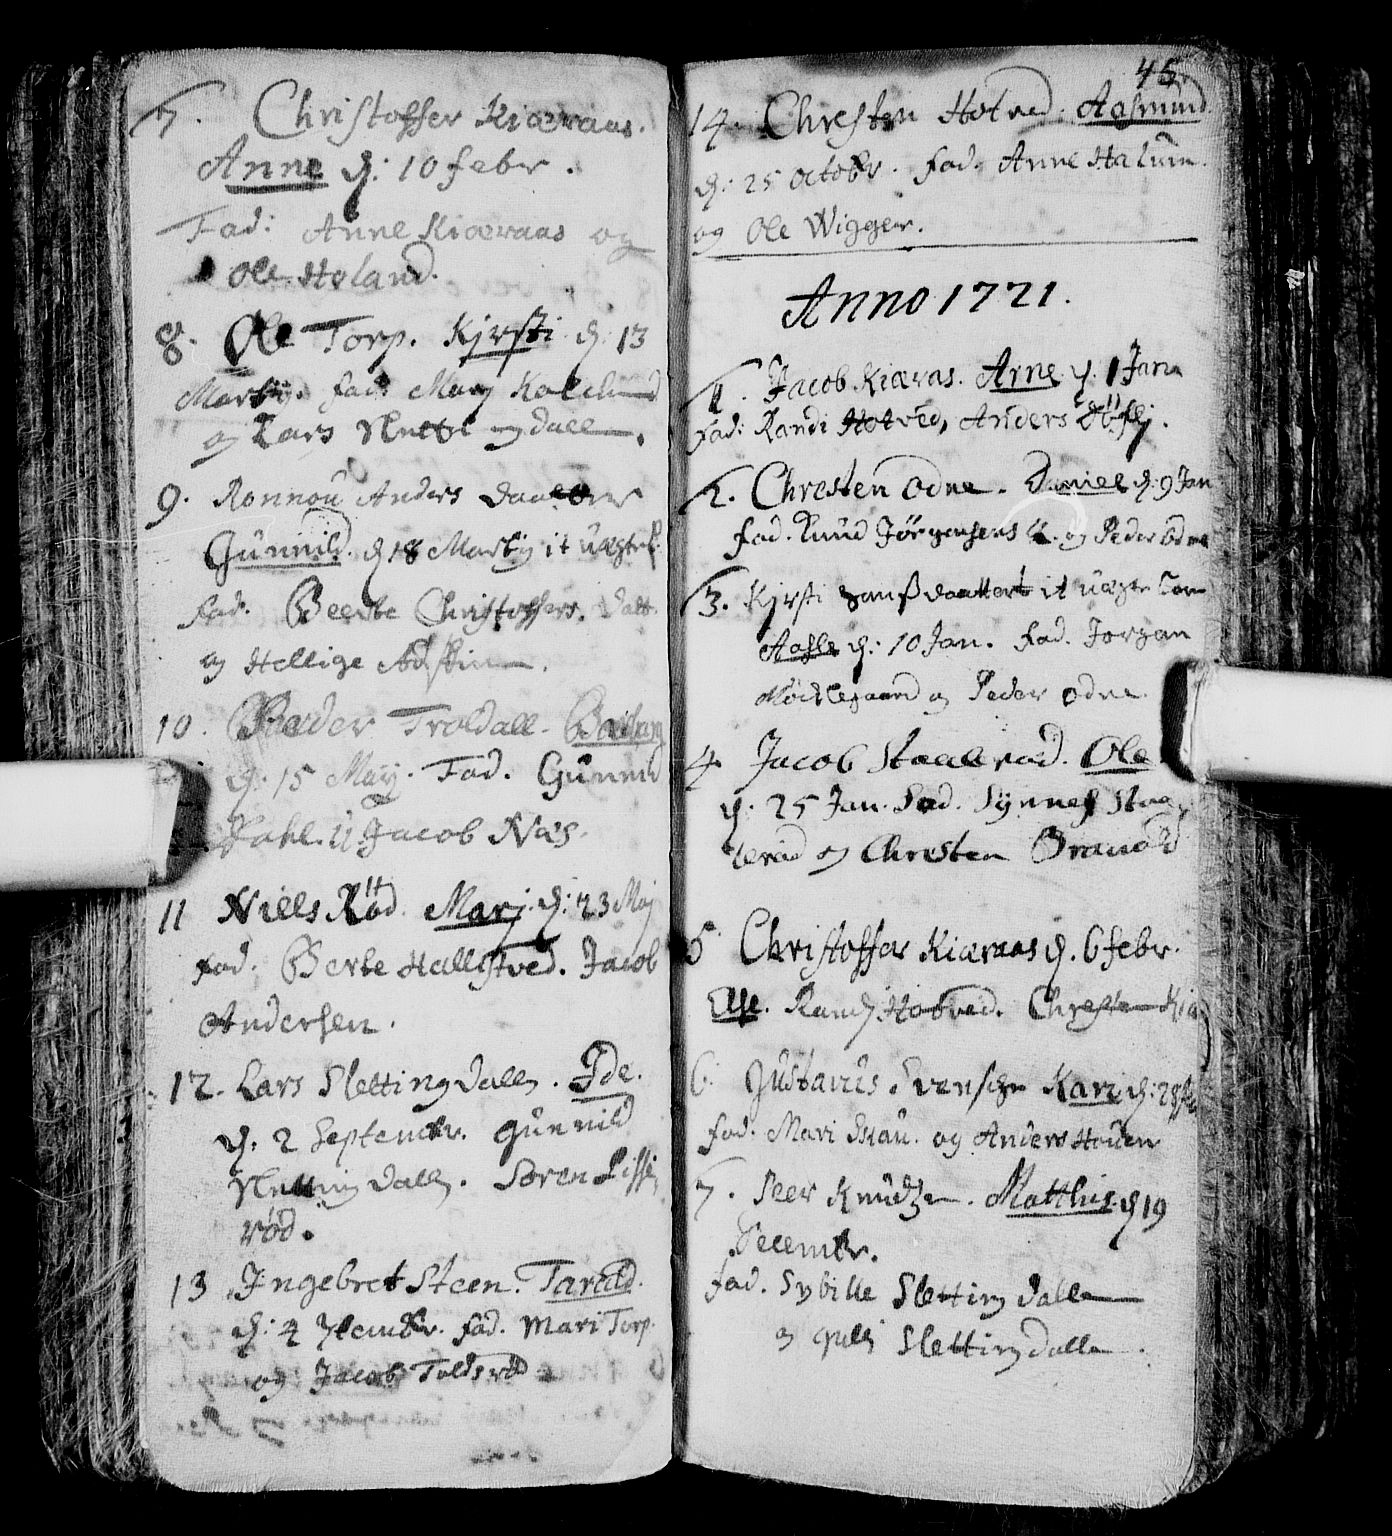 7. Christoffer Kiæraas.
Anne d: 10 febr.
Fad: Anne Kiæraas og
Ole Holand.
8. Ole Torp. Kjrsti d: 13
Martij. fad: Marj
og Lars Slettingdalen.
9. Ronnou Anders daatter
Gunnild. d 18 Martij it uægte b.
Fad. Beerte Christoffers. datt.
og Hellige
10. Peder Troldall.
d: 15 Maj. Fad. Gunnild
Dahl. Jacob Næs.
11 Niells Röd. Marj. d: 23 Maj
Fad. Berte Hallistved. Jacob
Andersen.
12. Lars Slettingdallen. Ide.
d: 2 Septembr. Gunnild
Slettingdallen. Soren
rød.
13 Ingebret Steen. Tarald.
d: 4 7tembr. fad. Mari Torp.
og Jacob Toldsrød
45.
14. Chresten Hotved. Aasmund.
d: 25 octobr. fad. Anne Halum.
og Ole Wigger.
Anno 1721.
1. Jacob Kiæras. Arne d. 1 Jan
Fad: Randi Hotved, Anders
2. Chresten Odne. Daniel d: 9 Jan
fad. Knud Jørgensens og Peder Odne
3. Kjrsti Hanß daatters it uægte barn
Aasle d: 10 Jan. fad. Jorgan
Möcklegaard og Peder Odne
4. Jacob Staalerød. Ole
d: 25 Jan. Fad. Synnef Staa-
lerød og Christen
5 Christoffer Kiæraas d. 6 febr.
Else. Randj Hotved. Chresten Kiæ
6. Gustavus Svensen Kari d: 28
fad: Mari og Anders Houen
7. Peer Knudzen. Matthis. d 19
Decembr.
fad. Sybille Slettingdallen
og Slettingdallen.